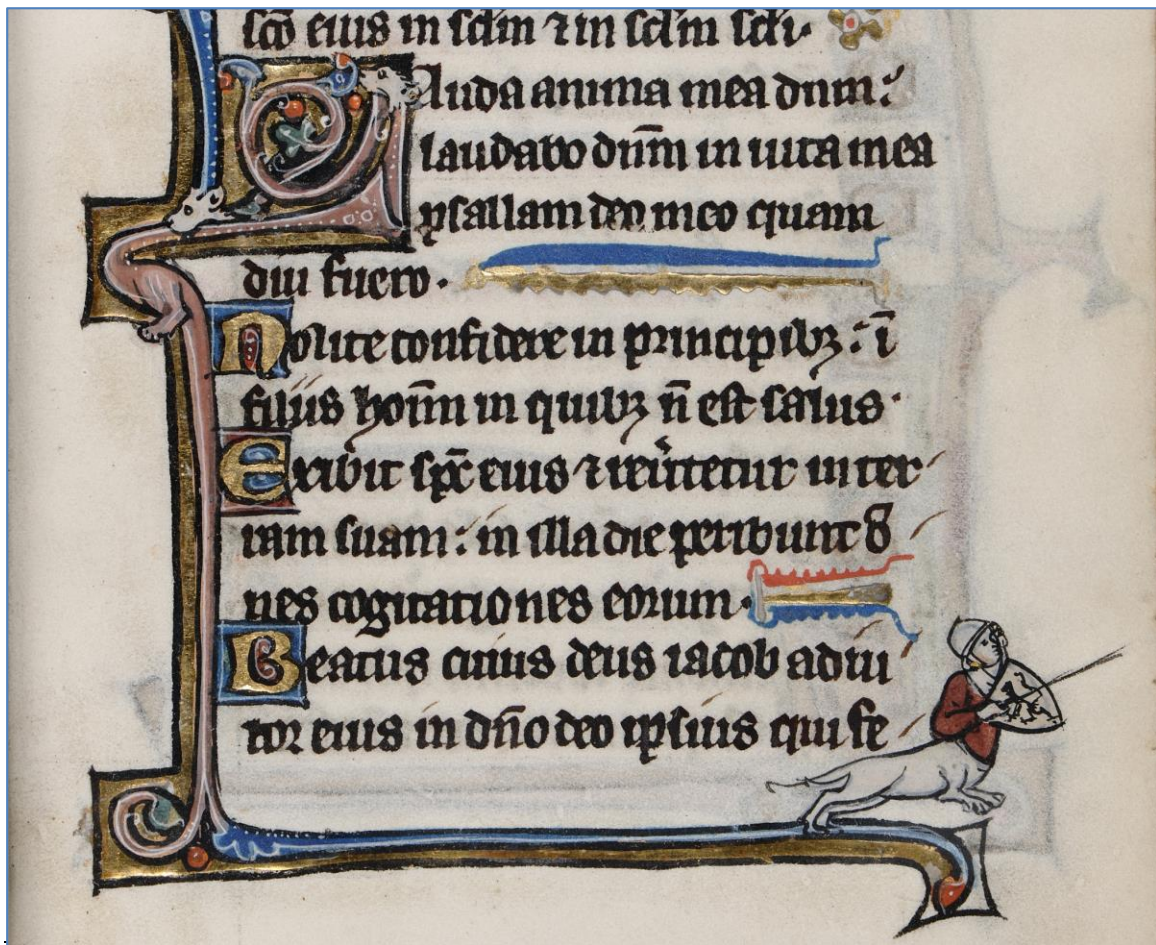 scd̄ eius in sclm̄ ⁊ in sclm̄ scli·
Lauda anima mea dnm̄:
laudabo dnm̄ in uita mea
psallam deo meo quam
diu fuero·
Nolite confidere in principibꝫ: ī
filijs hoīm in quibꝫ n̄ est salus·
Exibit spc̄ eius ⁊ reu̾tetur in ter
ram suam: in illa die peribunt ō
nes cogitationes eorum·
Beatus cuius deus iacob adiu
tor eius in dño deo ipsius qui fe